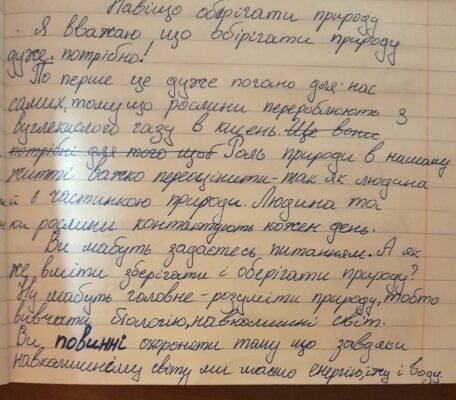 Навіщо оберігати природу
Я вважаю що обірігати природу
дуже потрібно!
По перше це дуже погано для нас
самих, тому що рослини перероблюють з
вуглекислого газу в кисень. Ще вони
потрібні для того щоб Роль природи в нашому
житті важко переоцінити - так як людина
й є частинкою природи. Людина та
рослини контактують кожен день.
Ви мабуть задаєтесь питанням. А як
же вміти зберігати і оберігати природу?
Ну мабуть головне - розуміти природу, тобто
вивчати біологію, навколишні світ.
Ви, повинні охороняти тому що завдяки
навколишнєму світу ми маємо енергію, їжу і воду.